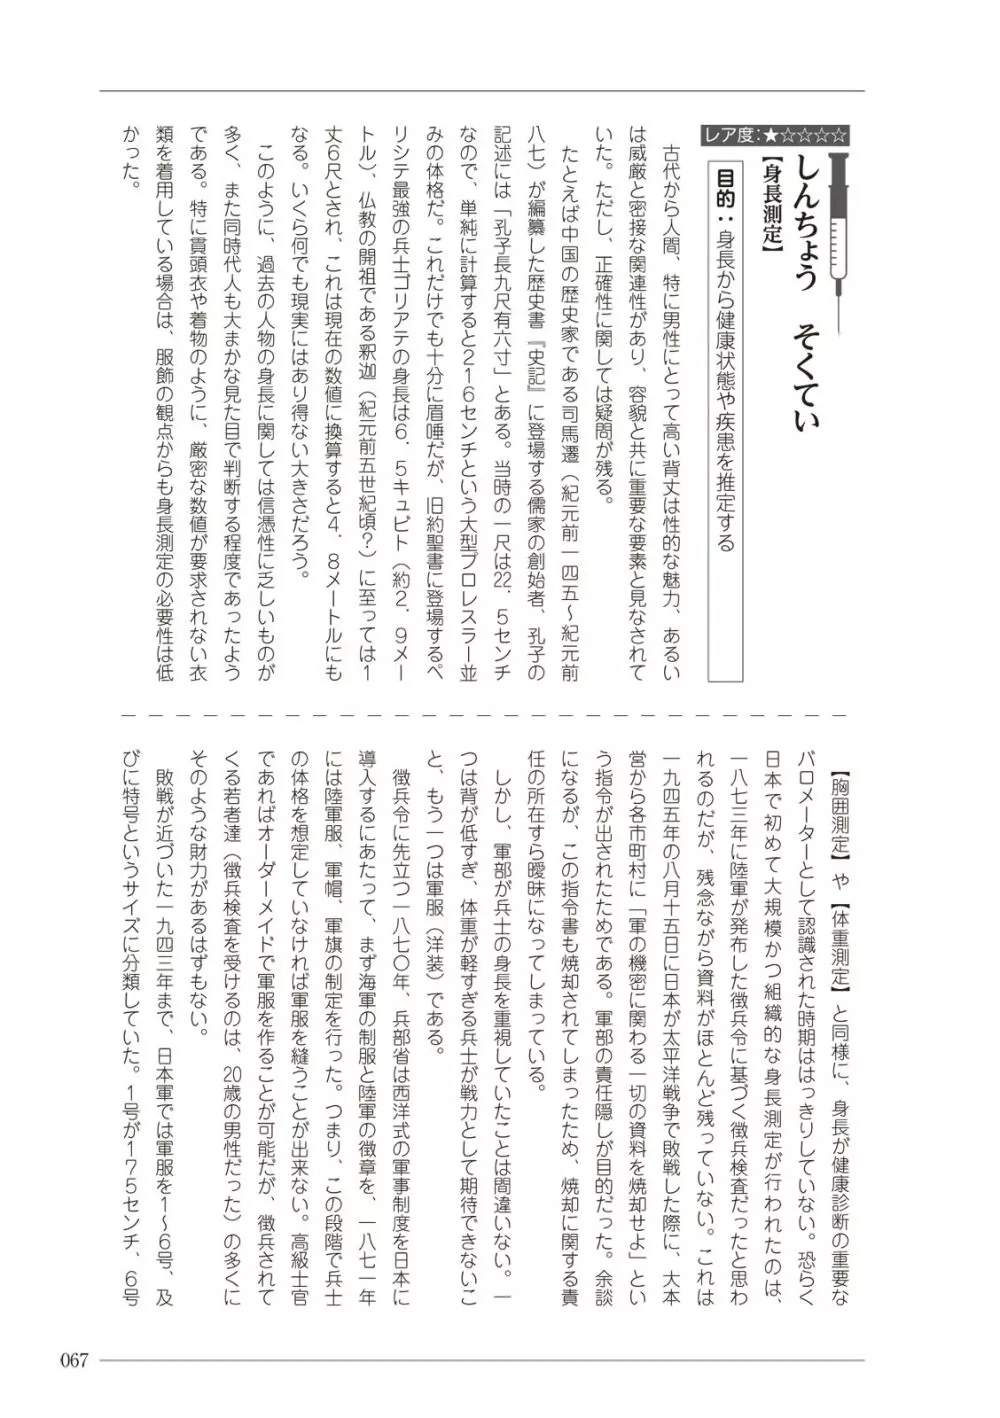 レア度：★☆☆☆☆
しんちょう　そくてい
【身長測定】
目的：身長から健康状態や疾患を推定する
　古代から人間、特に男性にとって高い背丈は性的な魅力、あるい
は威厳と密接な関連性があり、容貌と共に重要な要素と見なされて
いた。ただし、正確性に関しては疑問が残る。
　たとえば中国の歴史家である司馬遷（紀元前一四五～紀元前
八七）が編纂した歴史書『史記』に登場する儒家の創始者、孔子の
記述には「孔子長九尺有六寸」とある。当時の一尺は22．5センチ
なので、単純に計算すると216センチという大型プロレスラー並
みの体格だ。これだけでも十分に眉唾だが、旧約聖書に登場するペ
リシテ最強の兵士ゴリアテの身長は6．5キュビト（約2．9メー
トル）、仏教の開祖である釈迦（紀元前五世紀頃？）に至っては1
丈6尺とされ、これは現在の数値に換算すると4．8メートルにも
なる。いくら何でも現実にはあり得ない大きさだろう。
　このように、過去の人物の身長に関しては信憑性に乏しいものが
多く、また同時代人も大まかな見た目で判断する程度であったよう
である。特に貫頭衣や着物のように、厳密な数値が要求されない衣
類を着用している場合は、服飾の観点からも身長測定の必要性は低
かった。
　【胸囲測定】や【体重測定】と同様に、身長が健康診断の重要な
バロメーターとして認識された時期ははっきりしていない。恐らく
日本で初めて大規模かつ組織的な身長測定が行われたのは、
一八七三年に陸軍が発布した徴兵令に基づく徴兵検査だったと思わ
れるのだが、残念ながら資料がほとんど残っていない。これは
一九四五年の八月十五日に日本が太平洋戦争で敗戦した際に、大本
営から各市町村に「軍の機密に関わる一切の資料を焼却せよ」とい
う指令が出されたためである。軍部の責任隠しが目的だった。余談
になるが、この指令書も焼却されてしまったため、焼却に関する責
任の所在すら曖昧になってしまっている。
　しかし、軍部が兵士の身長を重視していたことは間違いない。一
つは背が低すぎ、体重が軽すぎる兵士が戦力として期待できないこ
と、もう一つは軍服（洋装）である。
　徴兵令に先立つ一八七〇年、兵部省は西洋式の軍事制度を日本に
導入するにあたって、まず海軍の制服と陸軍の徽章を、一八七一年
には陸軍服、軍帽、軍旗の制定を行った。つまり、この段階で兵士
の体格を想定していなければ軍服を縫うことが出来ない。高級士官
であればオーダーメイドで軍服を作ることが可能だが、徴兵されて
くる若者達（徴兵検査を受けるのは、20歳の男性だった）の多くに
そのような財力があるはずもない。
　敗戦が近づいた一九四三年まで、日本軍では軍服を1～6号、及
びに特号というサイズに分類していた。1号が175センチ、6号
067